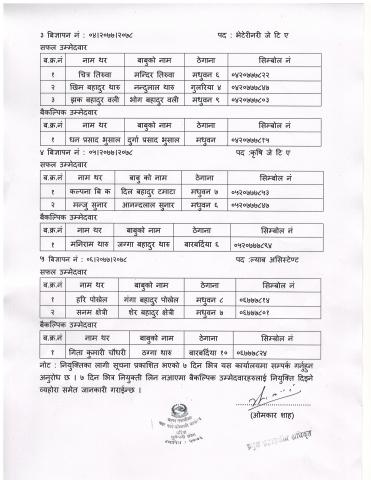 ३ बिज्ञापन नं : ०४।२०७७।२०७८ पद : भेटेरीनरी जे टि ए
सफल उम्मेदवार
ब.क्र.नं नाम थर बाबुको नाम ठेगाना सिम्बोल नं
१ चित्र तिरुवा मन्दिर तिरुवा मधुवन ६ ०४२०७७७८२२
२ छिम बहादुर थारु नन्दुलाल थारु गुलरिया ४ ०४२०७७७८४७
३ झक बहादुर वली भोग बहादुर वली मधुवन ९ ०४२०७७७८०३
बैकल्पिक उम्मेदवार
ब.क्र.नं नाम थर बाबुको नाम ठेगाना सिम्बोल नं
१ धन प्रसाद भुसाल दुर्गा प्रसाद भुसाल मधुवन ०४२०७७७८१५
४ बिज्ञापन नं : ०५।२०७७।२०७८ पद :कृषि जे टि ए
सफल उम्मेदवार
ब.क्र.नं नाम थर बाबु को नाम ठेगाना सिम्बोल नं
१ कल्पना बि क दिल बहादुर टमाटा मधुवन ७ ०५२०७७७८५३
२ मन्जु सुनार आनन्दलाल सुनार मधुवन ६ ०५२०७७७८४७
बैकल्पिक उम्मेदवार
ब.क्र.नं नाम थर बाबुको नाम ठेगाना सिम्बोल नं
१ मनिराम थारु जग्गा बहादुर थारु बारबर्दिया ६ ०५२०७७७८९४
५ बिज्ञापन नं : ०६।२०७७।२०७८ पद :ल्याब असिस्टेण्ट
सफल उम्मेदवार
ब.क्र.नं नाम थर बाबुको नाम ठेगाना सिम्बोल नं
१ हरि पोखेल गंगा बहादुर पोखेल मधुवन ८ ०६७७७८१४
२ सनम क्षेत्री शेर बहादुर क्षेत्री मधुवन ७ ०६७७७८०१
बैकल्पिक उम्मेदवार
ब.क्र.नं नाम थर बाबुको नाम ठेगाना सिम्बोल नं
१ गिता कुमारी चौधरी ठग्गा थारु बारबर्दिया १० ०६७७७८२४
नोट : नियुक्तिका लागी सूचना प्रकाशित भएको ७ दिन भित्र यस कार्यालयमा सम्पर्क गर्नुहुन
अनुरोध छ । ७ दिन भित्र नियुक्ती लिन नआएमा बैकल्पिक उम्मेदवारहरुलाई नियुक्ति दिइने
व्यहोरा समेत जानकारी गराईन्छ ।
(ओमकार शाह)
प्रमुख प्रशासकीय अधिकृत